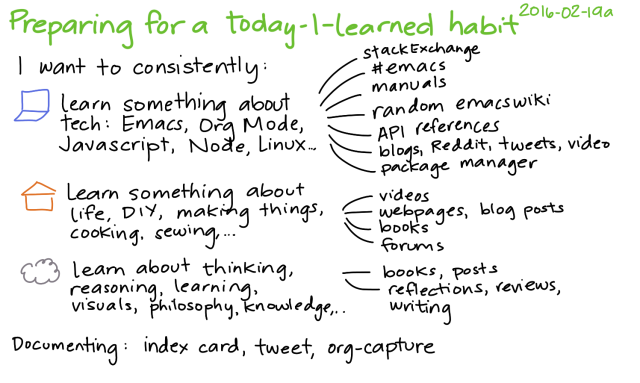 Preparing for a today-I-learned habit 2016-02-19a
I want to consistently:
learn something about
tech: Emacs, Org Mode,
Javascript, Node, Linux...
stackExchange
#emacs
manuals
random emacswiki
API references
blogs, Reddit, tweets, video
package manager
Learn something about
life, DIY, making things,
cooking, sewing,...
videos
webpages, blog posts
books
forums
learn about thinking,
reasoning, learning,
visuals, philosophy, knowledge,...
books, posts
reflections, reviews,
writing
Documenting: index card, tweet, org-capture